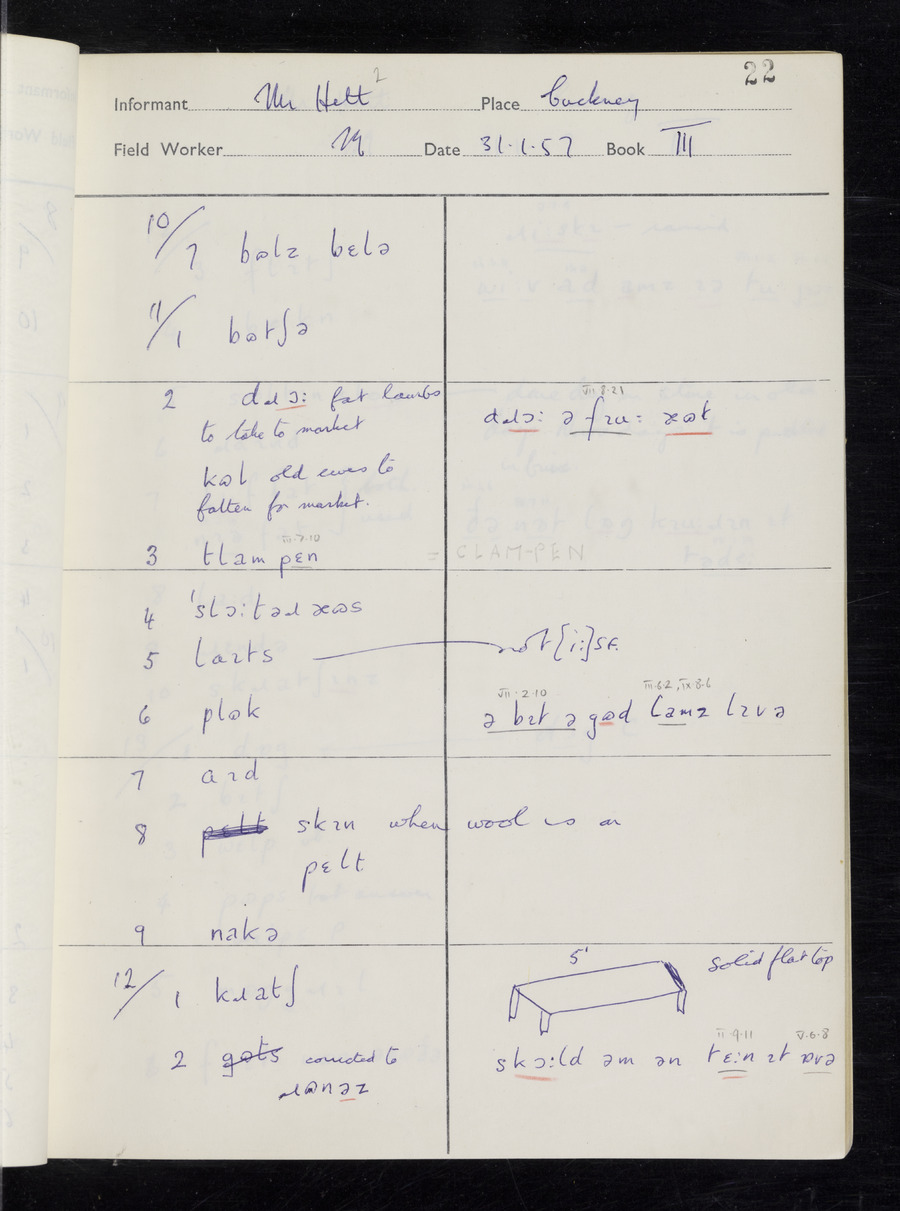 22
Informant Mr Hett 2 Place Cuckney
Field Worker Date 31.1.57 Book III
10/7 bɷlz bɛlə
11/1 bɷtʃə
2 dɹɔ: fat lambs
to take to market
kɷl old ewes to
fatten for market.
VII.8.21
III.7.10
3 tlam pɛn = CLAM-PEN
4
5 not [i:] SF.
6 plɷk
VII.2.10 III.6.2, IX.8.6
ə bɪt ə gɷd lamz lɪvə
7
8 skɪn when wool is on
pɛlt
9 nakə
12/1 kɹatʃ
5' solid flat top
2 corrected to
II.9.11 V.6.8
skɔ:ld əm ən tɛ:n ɪt ɒvə